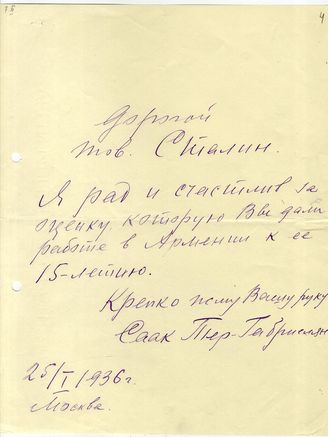 4
Дорогой
тов. Сталин.
Я рад и счастлив за
оценку, которую Вы дали
работе в Армении к ее
15-летию.
Крепко жму Вашу руку
Саак Тер-Габриелян
25/I 1936г.
Москва.